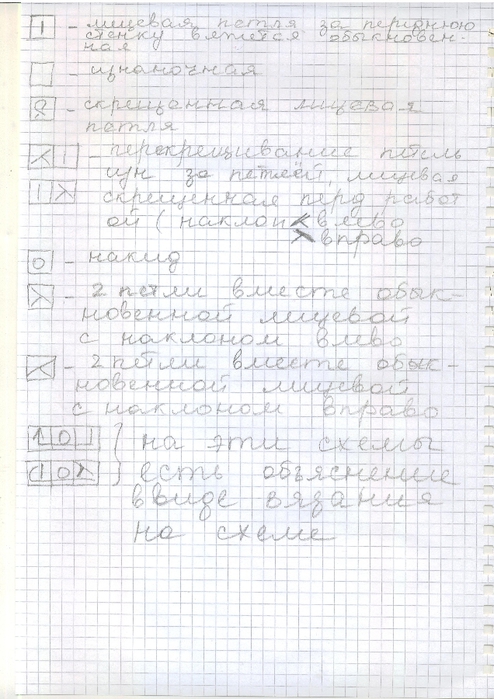 I - лицевая петля за переднюю
стенку вяжется обыкновен-
ная
- изнаночная
- скрещанная лицевая
петля
- перекрещивание петель
изн за петлёй, лицевая
скрещенная перд работ
ой (наклон < влево
> вправо
O - накид
- 2 петли вместе обык-
новенной лицевой
с наклоном влево
- 2 петли вместе обык-
новенной лицевой
с наклоном вправо
на эти схемы
есть объяснение
ввиде вязания
на схеме